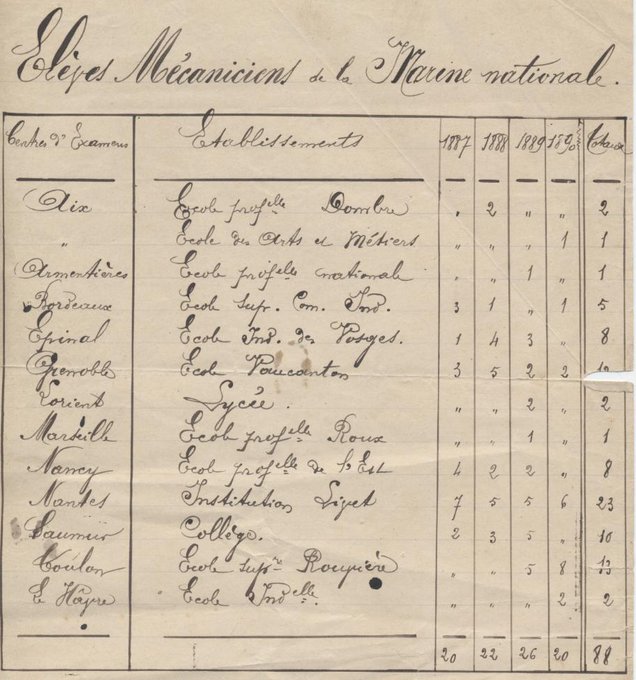 Elèves Mécaniciens de la Marine nationale.
Centres d'Examens Etablissements 1887 1888 1889 1890 Totaux
Aix Ecole prof^elle Dombre " 2 " " 2
" Ecole des Arts et Métiers " " " 1 1
Armentières Ecole prof^elle nationale " " 1 " 1
Bordeaux Ecole sup. Com. Ind. 3 1 " 1 5
Epinal Ecole Ind. des Vosges. 1 4 3 " 8
Grenoble Ecole Vaucanton 3 5 2 2 12
Lorient Lycée. " " 2 " 2
Marseille Ecole prof^elle Roux " " 1 " 1
Nancy Ecole prof^elle de l'Est 4 2 2 " 8
Nantes Institution Livet 7 5 5 6 23
Saumur Collège. 2 3 5 " 10
Toulon Ecole sup^re Rouvière " " 5 8 13
Le Hâvre Ecole Ind^elle. " " " 2 2
20 22 26 20 88